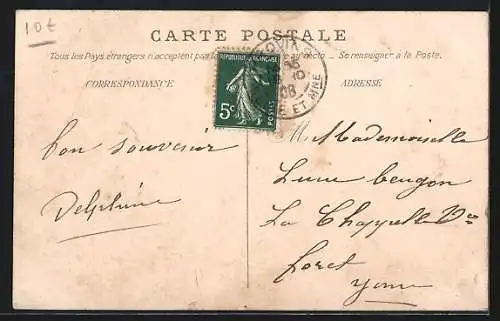 10t
CARTE POSTALE
Tous les Pays étrangers n'acceptent pas la recto _ Se renseigner à la Poste.
CORRESPONDANCE
ADRESSE
REPUBLIQUE FRANÇAISE
5c
POSTES
08
ET MNE
bon souvenir
Delphine
Mademoiselle
La Chappelle
Foret
Yonne